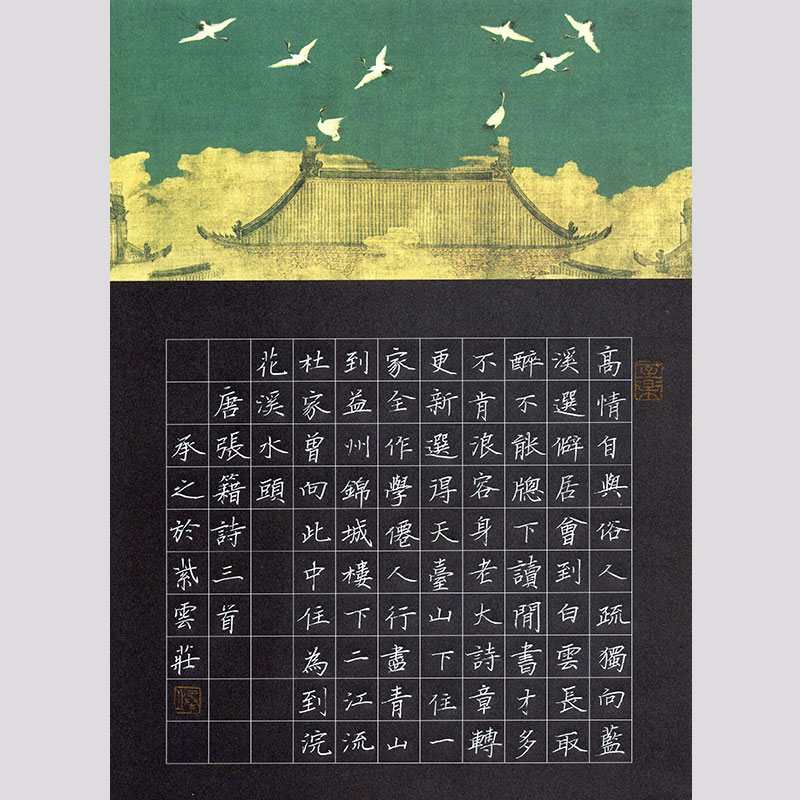 高情自與俗人疏獨向藍
溪選僻居會到白雲長取
醉不能牕下讀閒書才多
不肯浪容身老大詩章轉
更新選得天臺山下住一
家全作學僊人行盡青山
到益州錦城樓下二江流
杜家曾向此中住為到浣
花溪水頭
唐張籍詩三首
承之於紫雲莊